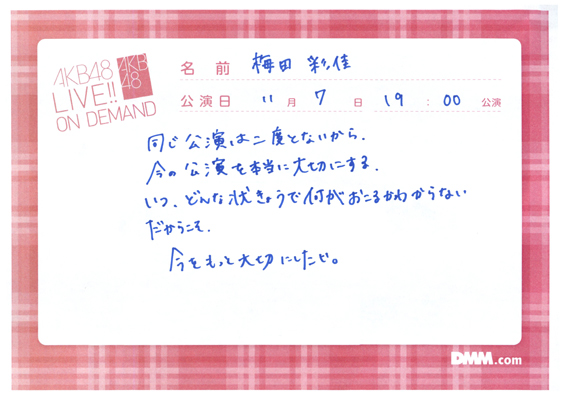 AKB48
LIVE!!
ON DEMAND
AKB
48
名前 梅田 彩佳
公演日 11月 7日 19:00 公演
同じ公演は二度とないから、
今の公演を本当に大切にする。
いつ、どんな状きょうで何がおこるかわからない
だからこそ、
今をもっと大切にしたい。
DMM.com